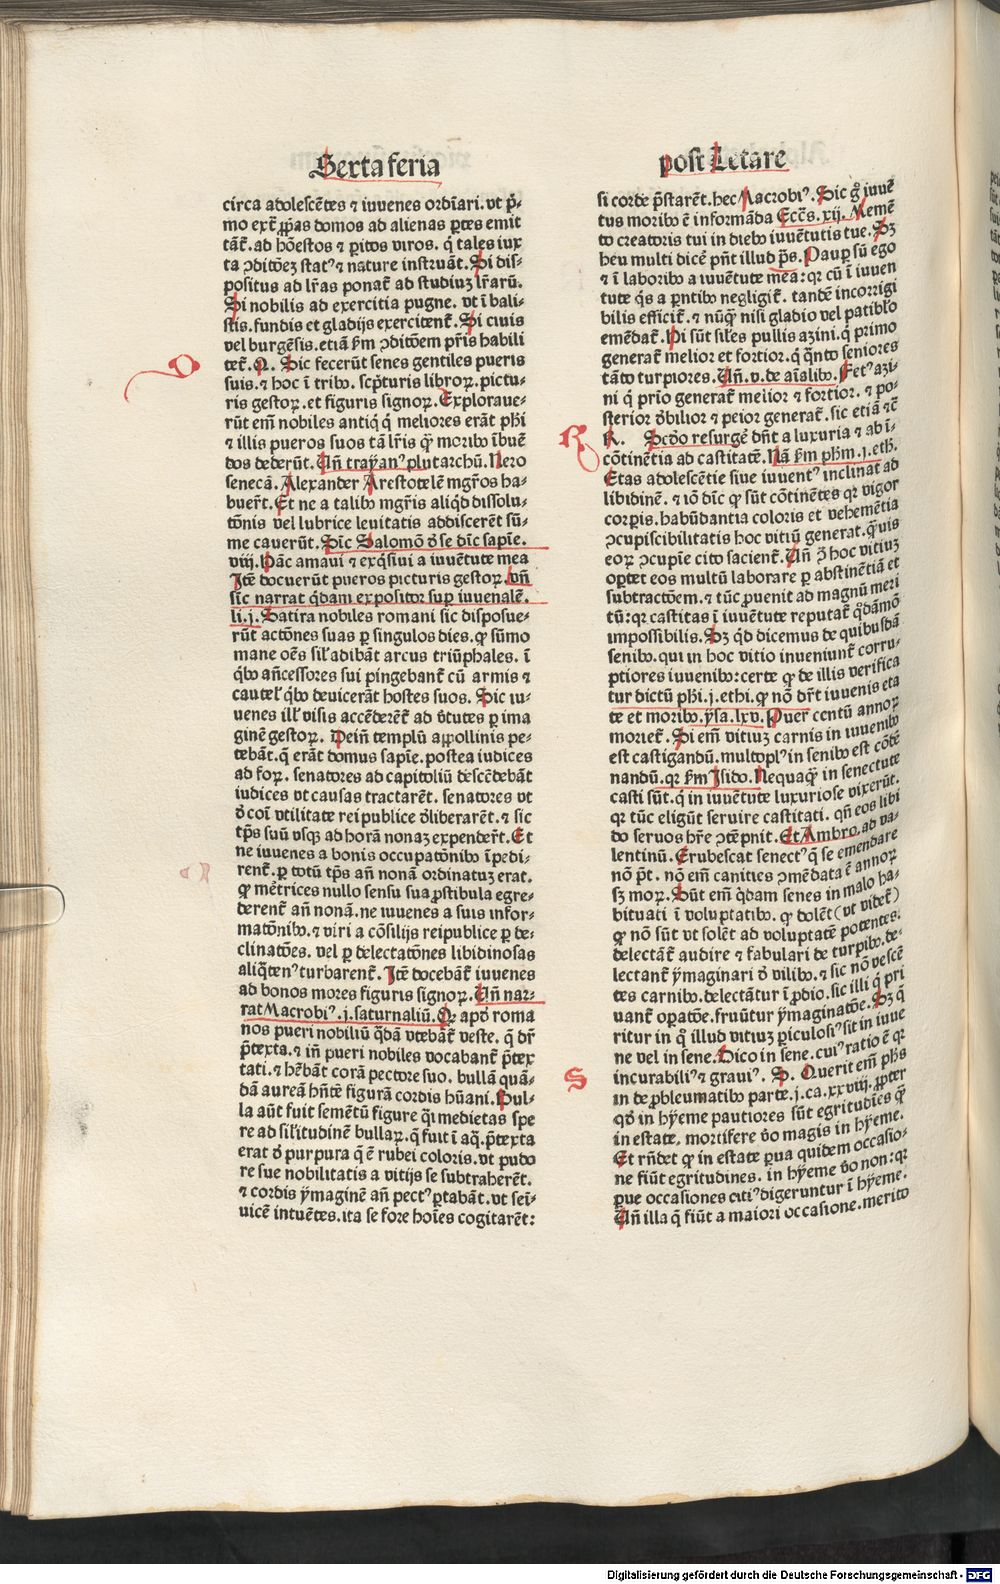 Sexta feria
circa adolescẽtes ⁊ iuuenes ordīari. vt p̃⸗
mo ext̃ ꝓp̃as domos ad alienas ꝑtes emit
tãt̃. ad hõestos ⁊ ꝑitos viros. q̃ tales iux
ta ꝯditõeʒ stat⁹ ⁊ nature instruãt. Si dis⸗
positus ad lr̃as ponat̃ ad studiuʒ lr̃arũ.
Si nobilis ad exercitia pugne. vt ĩ bali⸗
stis. fundis et gladijs exercitent̃. Si ciuis
vel burgẽsis. etiã ẜm ꝯditõem pr̃is habili
tet̃. Q. Sic fecerũt senes gentiles pueris
suis. ⁊ hoc ĩ tribꝰ. scp̃turis libroꝝ. pictu⸗
ris gestoꝝ. et figuris signoꝝ. Exploraue⸗
rũt em̃ nobiles antiq̃ q̃ meliores erãt ph̃i
⁊ illis pueros suos tã lr̃is q̃ꝫ moribꝰ ĩbuẽ
dos dederũt. Uñ trayan⁹ plutarchũ. Nero
senecã. Alexander Arestotelẽ mgr̃os ha⸗
buer̃t. Et ne a talibꝰ mgr̃is aliq̃d dissolu⸗
tõnis vel lubrice leuitatis addiscerẽt sũ⸗
me cauerũt. Sic Salomõ d̃ se dic̃ sapĩe.
viij. Hãc amaui ⁊ exq̃siui a iuuẽtute mea
Itẽ docuerũt pueros picturis gestoꝝ. vñ
sic narrat q̃dam expositor suꝑ iuuenalẽ.
li. j. Satira nobiles romani sic disposue⸗
rũt actõnes suas ꝑ singulos dies. qꝫ sũmo
mane oẽs sil̃ adibãt arcus triũphales. ĩ
q̃bꝰ añcessores sui pingebant̃ cũ armis ⁊
cautel̃ q̃bꝰ deuicerãt hostes suos. Sic iu⸗
uenes ill̃ visis accẽderẽt̃ ad v̓tutes ꝑ ima
ginẽ gestoꝝ. Deiñ templũ appollinis pe⸗
tebãt. q̃ erãt domus sapĩe. postea iudices
ad foꝝ. senatores ad capitoliũ descẽdebãt
iudices vt causas tractarẽt. senatores vt
d̓ cõi vtilitate rei publice d̓liberarẽt. ⁊ sic
tp̃s suũ vsqꝫ ad horã nonaʒ expender̃t. Et
ne iuuenes a bonis occupatõnibꝰ ĩpedi⸗
rent̃. ꝑ totũ tp̃s añ nonã ordinatuʒ erat.
qꝫ mẽtrices nullo sensu sua ꝓstibula egre⸗
derent̃ añ nonã. ne iuuenes a suis infor⸗
matõnibꝰ. ⁊ viri a cõsilijs reipublice ꝑ de⸗
clinatões. vel ꝑ delectatõnes libidinosas
aliq̃ten⁹ turbarent̃. Itẽ docebãt̃ iuuenes
ad bonos mores figuris signoꝝ. Uñ nar⸗
rat Macrobi⁹. j. saturnaliũ. Qꝫ apd̓ roma
nos pueri nobiliũ q̃dã vtebãt̃ veste. q̃ dr̃
p̃texta. ⁊ iñ pueri nobiles vocabant̃ p̃tex
tati. ⁊ hẽbãt corã pectore suo. bullã quã⸗
dã aureã hñtẽ figurã cordis hũani. Bul⸗
la aũt fuit semẽtũ figure q̃i medietas spe
re ad sil̃itudinẽ bullaꝝ. q̃ fuit ĩ aq̃. p̃texta
erat d̓ purpura q̃ ẽ rubei coloris. vt pudo
re sue nobilitatis a vitijs se subtraherẽt.
⁊ cordis ymaginẽ añ pect⁹ ꝑtabãt. vt seĩ⸗
uicẽ intuẽtes. ita se fore hoĩes cogitarẽt:
post Letare
si corde p̃starẽt. hec Macrobi⁹. Sic g̃ iuuẽ
tus moribꝰ ẽ informãda Ecc̃s. xij. Memẽ
to creatoris tui in diebꝰ iuuẽtutis tue. Sʒ
heu multi dicẽ pñt illud p̃s. Pauꝑ sũ ego
⁊ ĩ laboribꝰ a iuuẽtute mea: qꝛ cũ ĩ iuuen
tute q̃s a ꝑntibꝰ negligit̃. tandẽ incorrigi
bilis efficit̃. ⁊ nũq̃ꝫ nisi gladio vel patibl̓o
emẽdat̃. Hi sũt sil̃es pullis azini. q̃ primo
generat̃ melior et fortior. q̃ q̃nto seniores
tãto turpiores. Uñ. v. de aĩalibꝰ. Fet⁹ azi⸗
ni q̃ prĩo generat̃ melior ⁊ fortior. ⁊ po⸗
sterior d̓bilior ⁊ peior generat̃. sic etiã ⁊c̃
R. Scd̓o resurgẽ dñt a luxuria ⁊ ab ĩ⸗
cõtinẽtia ad castitatẽ. Nã ẜm ph̃m. j. eth.
Etas adolescẽtie siue iuuent⁹ inclinat ad
libidinẽ. ⁊ iõ dic̃ qꝫ sũt cõtinẽtes qꝛ vigor
corꝑis. habũdantia coloris et vehemẽtia
ꝯcupiscibilitatis hoc vitiũ generat. q̃ꝫuis
eoꝝ ꝯcupĩe cito sacient̃. Uñ d̓ hoc vitiuʒ
oꝑtet eos multũ laborare ꝑ abstinẽtiã et
subtractõem. ⁊ tũc ꝓuenit ad magnũ meri
tũ: qꝛ castitas ĩ iuuẽtute reputat̃ q̃dãmõ
impossibilis. Sʒ q̃d dicemus de quibusdã
senibꝰ. qui in hoc vitio inueniunt̃ corru⸗
ptiores iuuenibꝰ: certe qꝫ de illis verifica
tur dictũ ph̃i. j. ethi. qꝫ nõ dr̃t iuuenis eta
te et moribꝰ. ysa. lxv. Puer centũ annoꝝ
moriet̃. Si em̃ vitiuʒ carnis in iuuenibꝰ
est castigandũ. multopl⁹ in senibꝰ est cõdẽ
nandũ. qꝛ ẜm Isido. Nequaq̃ꝫ in senectute
casti sũt. q̃ in iuuẽtute luxuriose vixerũt.
qꝛ tũc eligũt seruire castitati. qñ eos libi
do seruos hr̃e ꝯtẽpnit. Et Ambro. ad va⸗
lentinũ. Erubescat senect⁹ q̃ se emendare
nõ p̃t. nõ em̃ canities ꝯmẽdata ẽ annoꝝ
sʒ moꝝ. Sũt em̃ q̃dam senes in malo ha⸗
bituati ĩ voluptatibꝰ. qꝫ dolẽt (vt videt̃)
qꝫ nõ sũt vt solẽt ad voluptatẽ potentes.
delectãt̃ audire ⁊ fabulari de turpibꝰ. de⸗
lectant̃ ymaginari d̓ vilibꝰ. ⁊ sic nõ vescẽ
tes carnibꝰ. delectãtur ĩ ꝓdio. sic illi q̃ pri
uant̃ oꝑatõe. fruũtur ymaginatõe. Sʒ q̃
ritur in q̃ illud vitiuʒ ꝑiculosi⁹ sit in iuue
ne vel in sene. Dico in sene. cui⁹ ratio ẽ qꝛ
incurabili⁹ ⁊ graui⁹. S. Querit em̃ ph̃s
in de ꝓbleumatibꝰ parte. j. ca. xxviij. ꝓpter
qd̓ in hyeme pautiores sũt egritudĩes q̃ꝫ
in estate. mortifere v̓o magis in hyeme.
Et rñdet qꝫ in estate ꝑua quidem occasio⸗
ne fiũt egritudines. in hyeme v̓o non: qꝛ
ꝑue occasiones citi⁹ digeruntur ĩ hyeme.
Uñ illa q̃ fiũt a maiori occasione. merito
O
R
S
Digitalisierung gefördert durch die Deutsche Forschungsgemeinschaft - DFG